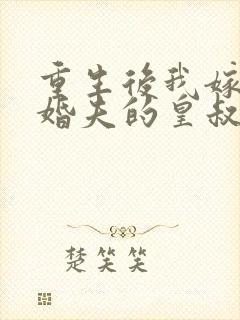 重生後我嫁
婚夫的皇叔
楚笑笑